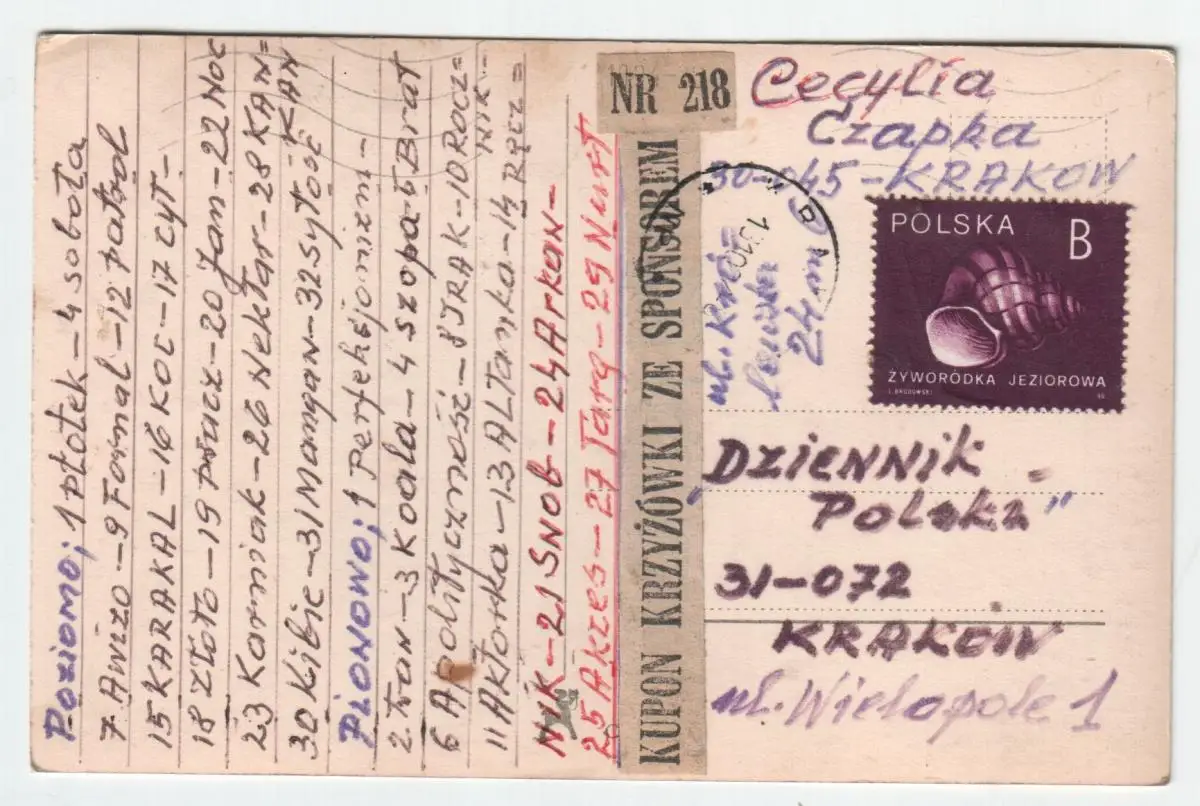 Poziomo; 1 płotek - 4 sobota
7 Awizo - 9 Fornal - 12 patrol
15 KARAKAL - 16 KOC - 17 cyt -
18 złoto - 19 płacz - 20 Jam - 22 Noc
23 Karniak - 26 Nektar - 28 KAN=
KAN
30 Kibic - 31 Mangan - 32 sytość -
PIONOWO; 1 Perfekcjonizm -
2 tran - 3 Koala - 4 szopa - 5 Brat
6 Apolityczność - 8 IRAK - 10 ROCZ=
NIK -
11 Aktorka - 13 ALTanka - 14 Ręcz=
NIK - 21 SNOB - 24 Arkan -
25 Akces - 27 Targ - 29 Nurt
NR 218
KUPON KRZYŻÓWKI ZE SPONSOREM
Cecylia
Czapka
30-045 - KRAKOW
ul. Kró=
lewska
24 m
POLSKA
B
ŻYWORÓDKA JEZIOROWA
"DZIENNIK
Polski"
31-072
KRAKOW
ul. Wielopole 1